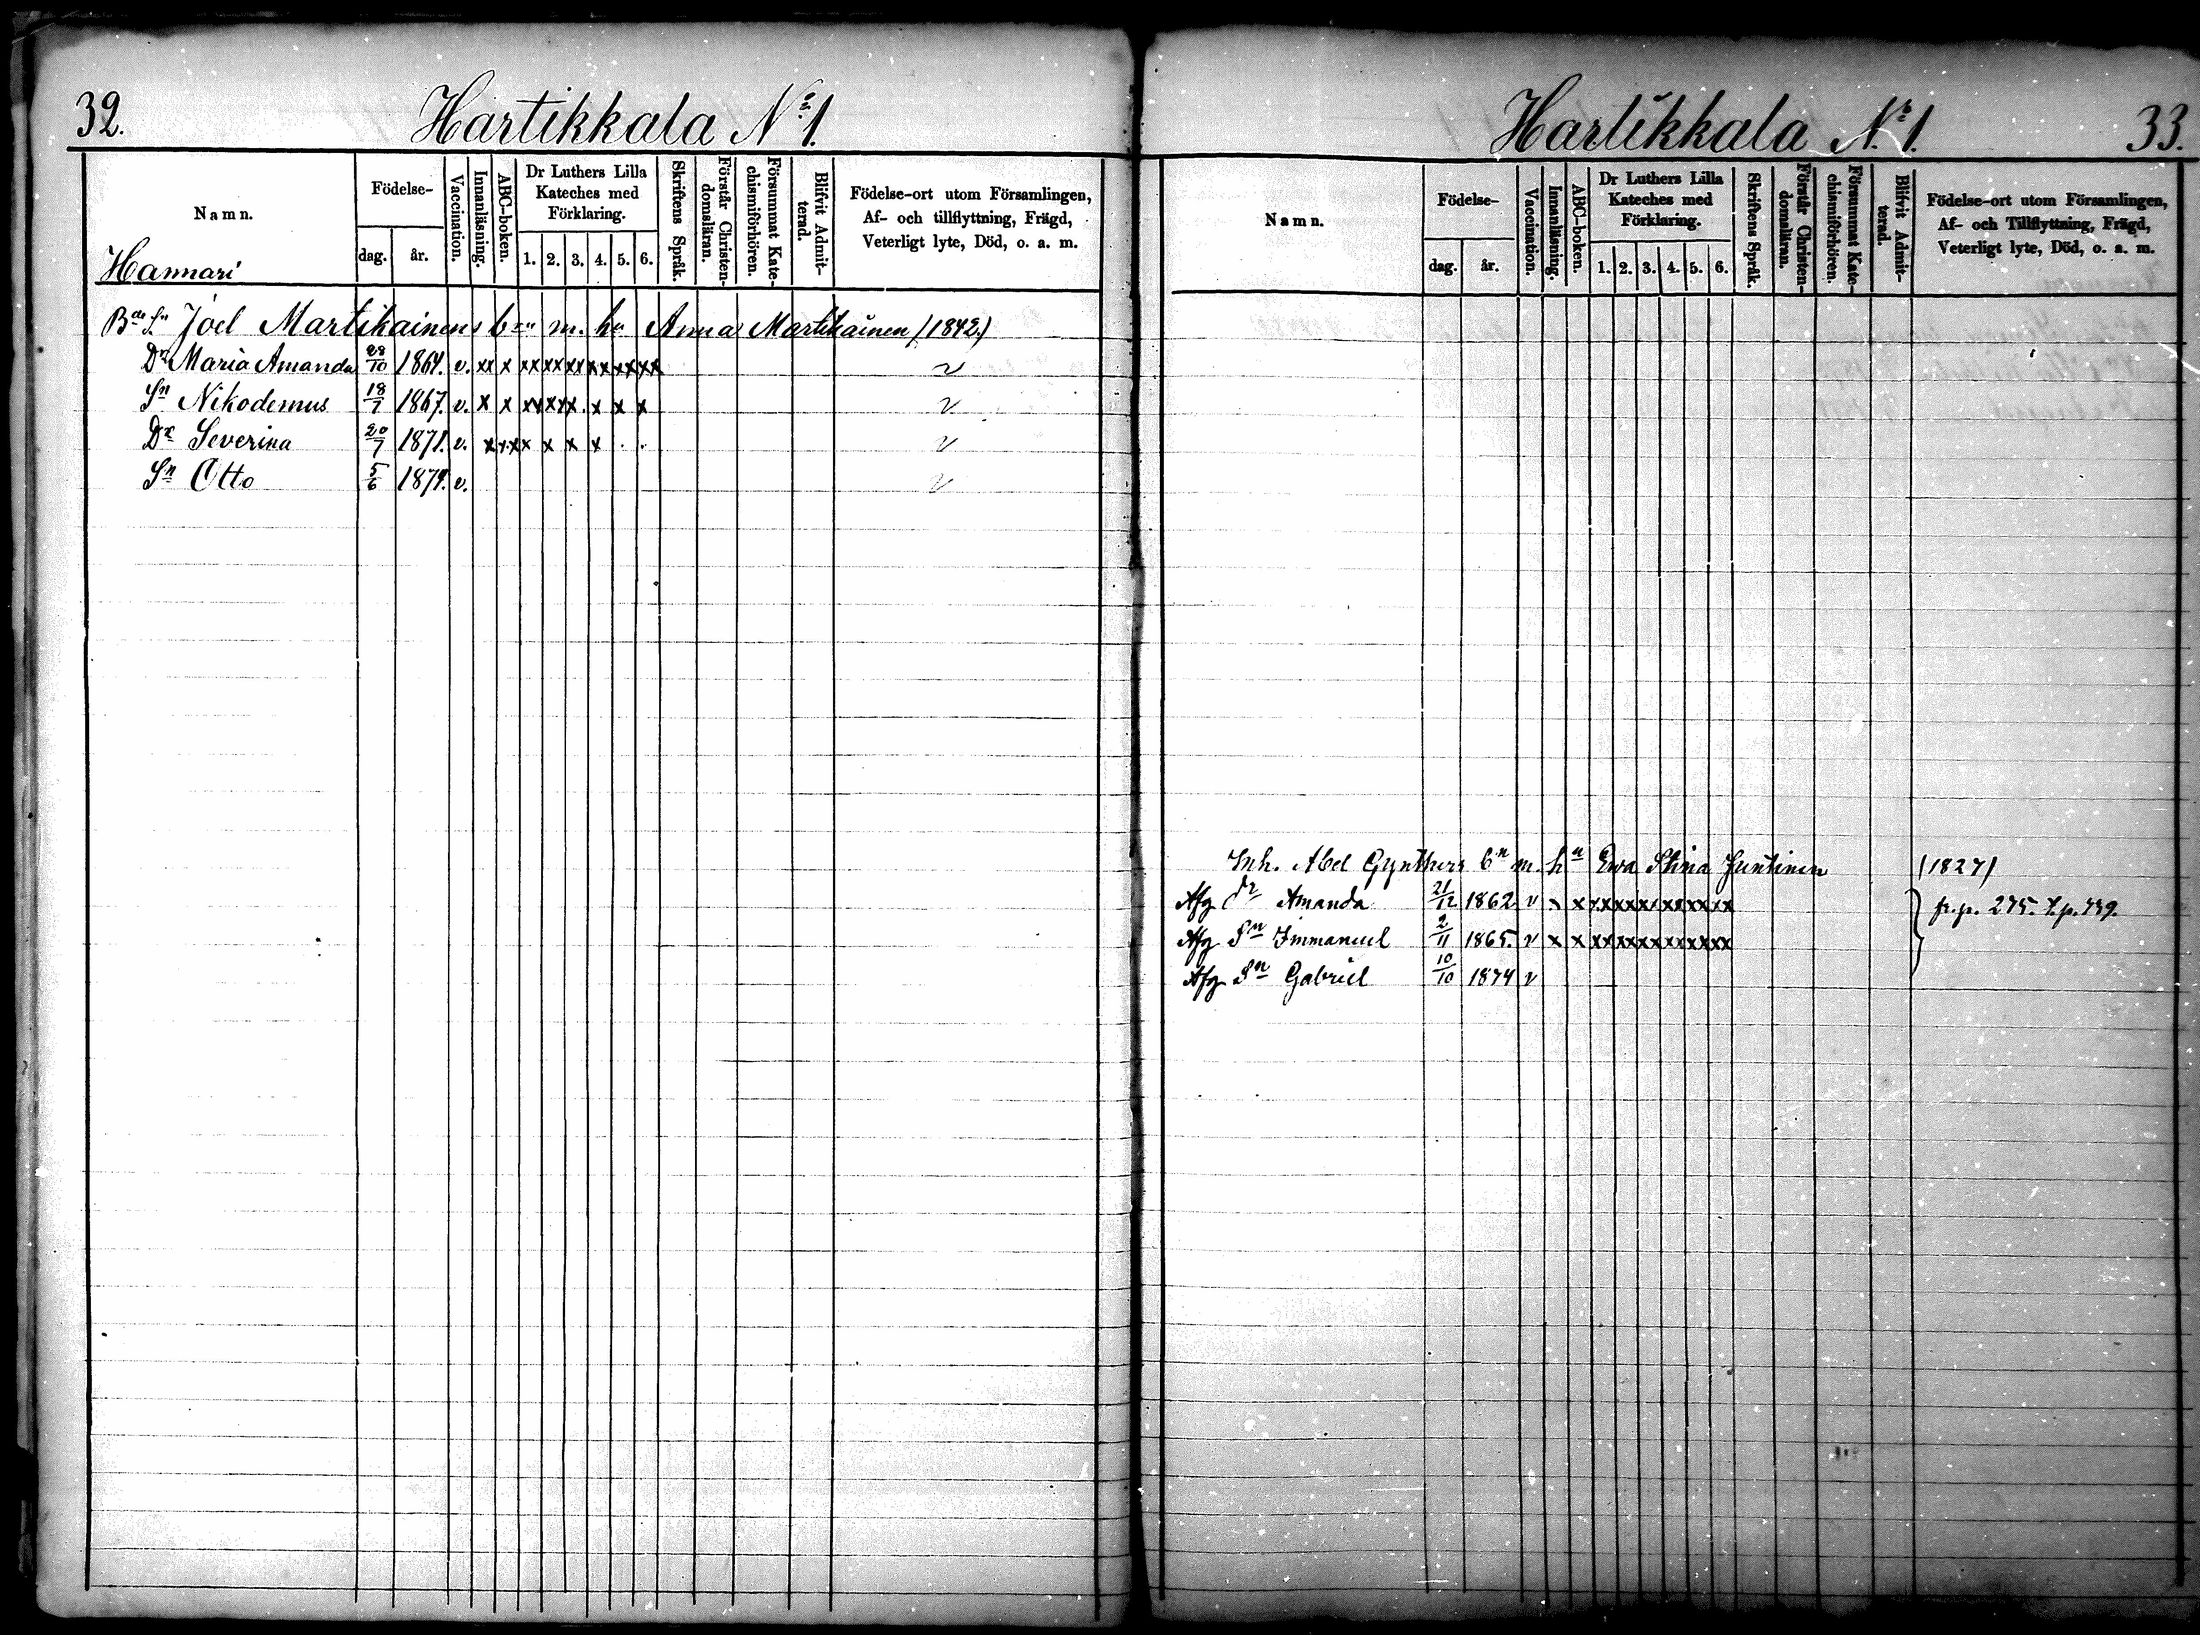 32.
Hartikkala No 1.
Namn.
Födelse-
dag.
år.
Vaccination.
Innanläsning.
ABC-boken.
Dr Luthers Lilla
Kateches med
Förklaring.
1. 2. 3. 4. 5. 6.
Skriftens Språk.
Förstår Christen-
domsläran.
Försummat Kate-
chismiförhören.
Blifvit Admit-
terad.
Födelse-ort utom Församlingen,
Af- och tillflyttning, Frägd,
Veterligt lyte, Död, o. a. m.
Hannari
Joel Martikainens bn m. hu Anna Martikainen (1842)
Dr Maria Amanda 28/10 1864. v. xx x xx xx xx xx xx xx v
Sn Nikodemus 18/7 1867. v. x x xx xx x x x v
Dr Severina 20/7 1871. v. x x x x x x x . . v
Sn Otto 5/6 1874. v. v
Hartikkala No 1.
33.
Namn.
Födelse-
dag.
år.
Vaccination.
Innanläsning.
ABC-boken.
Dr Luthers Lilla
Kateches med
Förklaring.
1. 2. 3. 4. 5. 6.
Skriftens Språk.
Förstår Christen-
domsläran.
Försummat Kate-
chismiförhören.
Blifvit Admit-
terad.
Födelse-ort utom Församlingen,
Af- och Tillflyttning, Frägd,
Veterligt lyte, Död, o. a. m.
Inh. Abel Gynthers bn m. hu Ewa Stina Juntinen (1827)
Afg dr Amanda 21/12 1862 v x x xx xx xx xx xx xx } fr. p. 275.
Afg Sn Immanuel 2/11 1865. v x x xx xx xx xx xx xx
Afg Sn Gabriel 10/10 1874 v